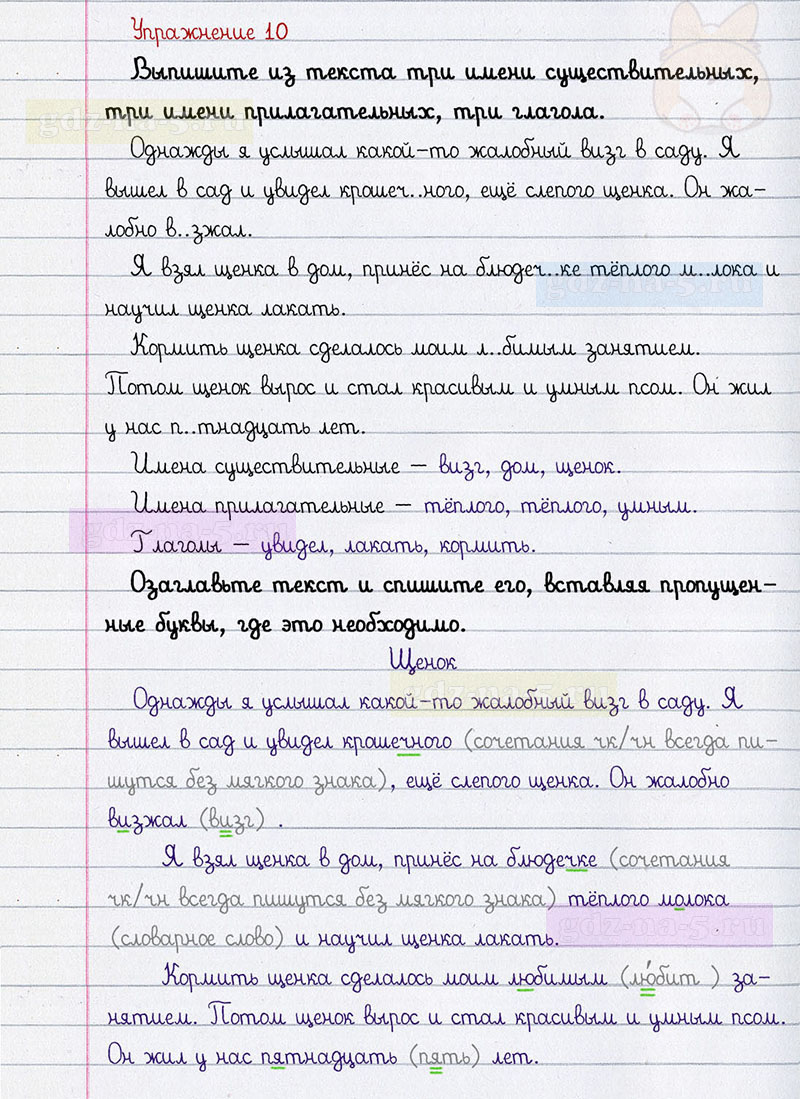 Упражнение 10
Выпишите из текста три имени существительных,
три имени прилагательных, три глагола.
gdz-na-5.ru
Однажды я услышал какой-то жалобный визг в саду. Я
вышел в сад и увидел крошеч..ного, ещё слепого щенка. Он жа-
лобно в..зжал.
Я взял щенка в дом, принёс на блюдеч..ке тёплого м..лока и
gdz-na-5.ru
научил щенка лакать.
Кормить щенка сделалось моим л..бимым занятием.
Потом щенок вырос и стал красивым и умным псом. Он жил
у нас п..тнадцать лет.
Имена существительные – визг, дом, щенок.
Имена прилагательные – тёплого, тёплого, умным.
gdz-na-5.ru
Глаголы – увидел, лакать, кормить.
Озаглавьте текст и спишите его, вставляя пропущен-
ные буквы, где это необходимо.
Щенок
gdz-na-5.ru
Однажды я услышал какой-то жалобный визг в саду. Я
вышел в сад и увидел крошечного (сочетания чк/чн всегда пи-
шутся без мягкого знака), ещё слепого щенка. Он жалобно
визжал (визг) .
Я взял щенка в дом, принёс на блюдечке (сочетания
чк/чн всегда пишутся без мягкого знака) тёплого молока
gdz-na-5.ru
(словарное слово) и научил щенка лакать.
Кормить щенка сделалось моим любимым (лю́бит ) за-
нятием. Потом щенок вырос и стал красивым и умным псом.
Он жил у нас пятнадцать (пять) лет.